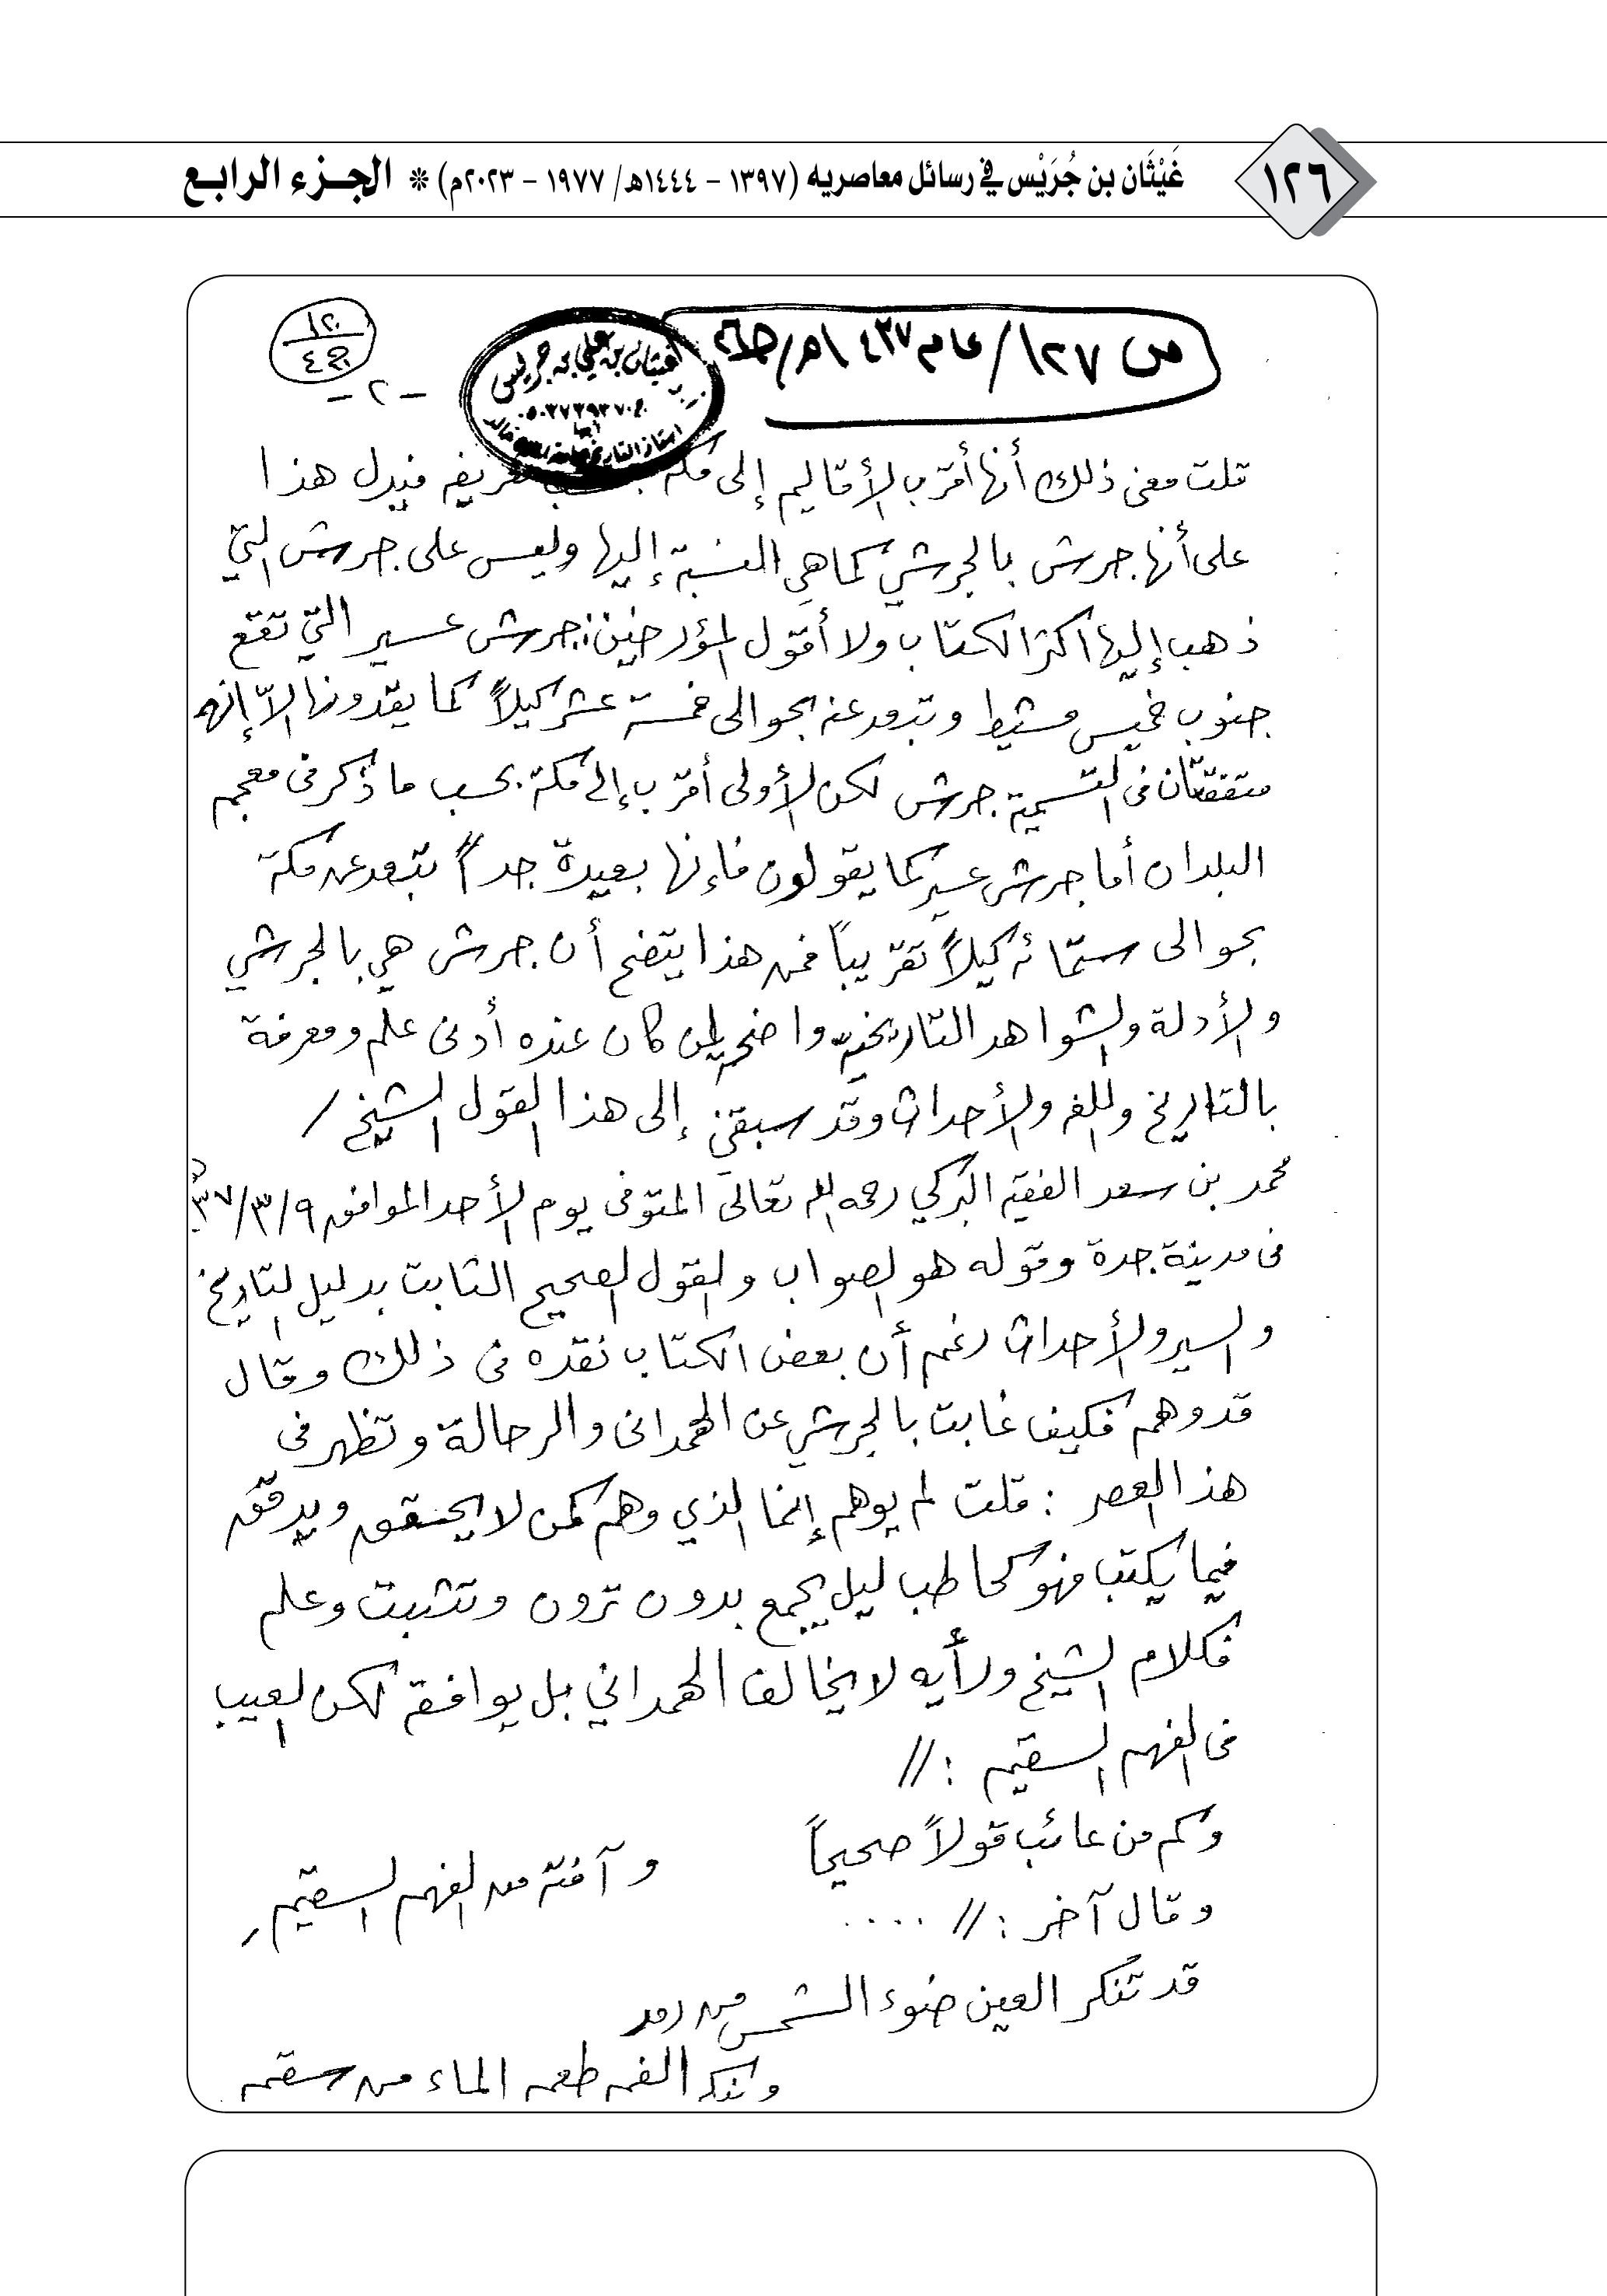 ١٢٦
غَيْثَان بن جُرَيْس في رسائل معاصريه (١٣٩٧ – ١٤٤٤هـ/ ١٩٧٧ – ٢٠٢٣م) * الجـزء الرابـع
ص ١٢٧/ عام ١٤٣٧هـ/
١٢٠
- ٢ -
غيثان بن علي بن جريس
٠٥٠٣٧٣٩٣٧٠
أبها
قلت معنى ذلك أنها أقرب الأقاليم إلى مكة تعريفه فيدل هذا
على أنها جرش بالجرشي كما هي النسبة إليها وليس على جرش التي
ذهب إليها أكثر الكتاب ولا أقول المؤرخين: جرش عسير التي تقع
جنوب خميس مشيط وتبعد عنه بحوالى خمسة عشر كيلاً كما يقدرونها إلاّ إنهم
متفقتان في التسمية جرش لكن الأولى أقرب إلى مكة بحسب ما ذكر في معجم
البلدان أما جرش عسير كما يقولون فإنها بعيدة جداً تبعد عن مكة
بحوالى ستمائة كيلاً تقريباً فمن هذا يتضح أن جرش هي بالجرشي
والأدلة والشواهد التاريخية واضحة لمن كان عنده أدنى علم ومعرفة
بالتاريخ واللغة والأحداث وقد سبقني إلى هذا القول الشيخ /
محمد بن سعد الفقيه البركي رحمه الله تعالى المتوفى يوم الأحد الموافق ٩/٣/٣٧
في مدينة جدة وقوله هو الصواب والقول الصحيح الثابت بدليل التاريخ
والسير والأحداث رغم أن بعض الكتاب نقده في ذلك وقال
قد وهم فكيف غابت بالجرشي عن الهمداني والرحالة وتظهر في
هذا العصر : قلت لم يوهم إنما الذي وهم كمن لا يحقق ويدقق
فيما يكتب فهو كحاطب ليل يجمع بدون ترون وتثبت وعلم
فكلام الشيخ ورأيه لا يخالف الهمداني بل يوافقه لكن العيب
في الفهم السقيم : //
وكم من عائب قولاً صحيحاً وآفته من الفهم السقيم
وقال آخر : // ....
قد تنكر العين ضوء الشمس من رمد
وتنكر الفم طعم الماء من سقم